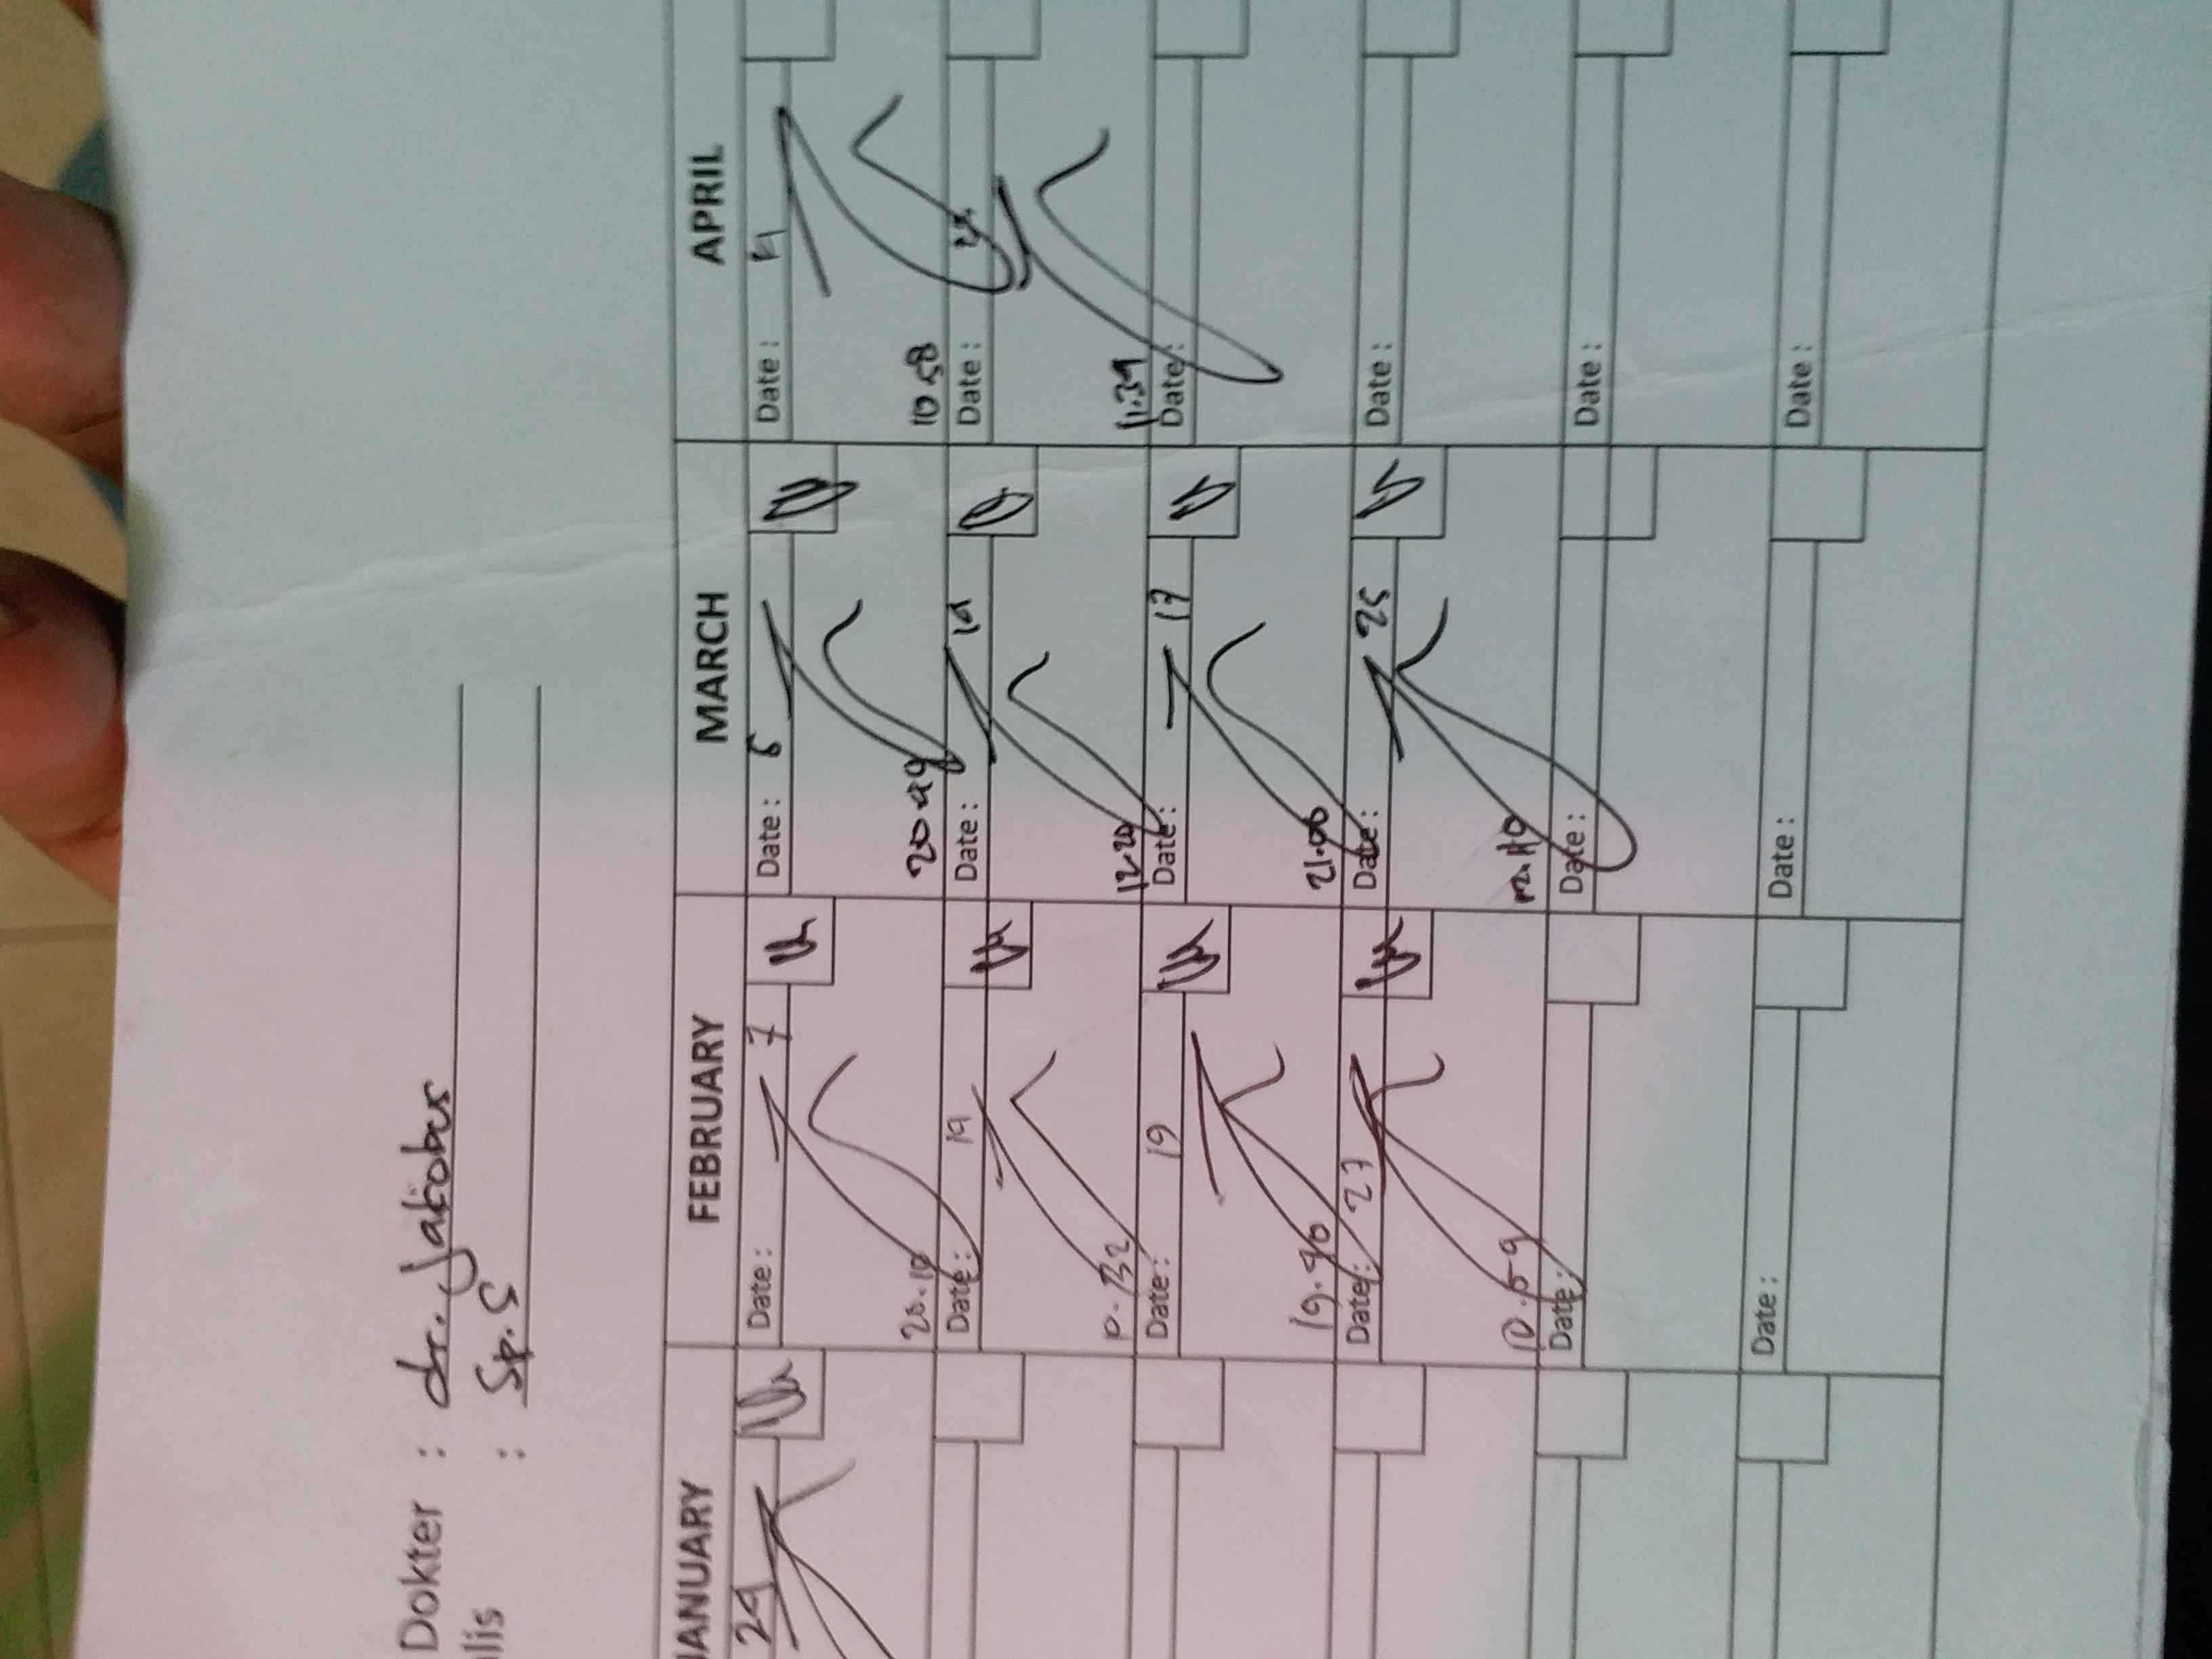 Dokter : dr. Jakobus
lis : Sp. S
JANUARY FEBRUARY MARCH APRIL
29 Date : 7 Date : 6 Date :
20.10 20 49 10 58
Date : 19 Date : 19 Date :
12.20 11.39
Date : 19 Date : 17 Date :
19.40 21.00
Date : 27 Date : 25 Date :
10.59
Date : Date : Date :
Date : Date : Date :